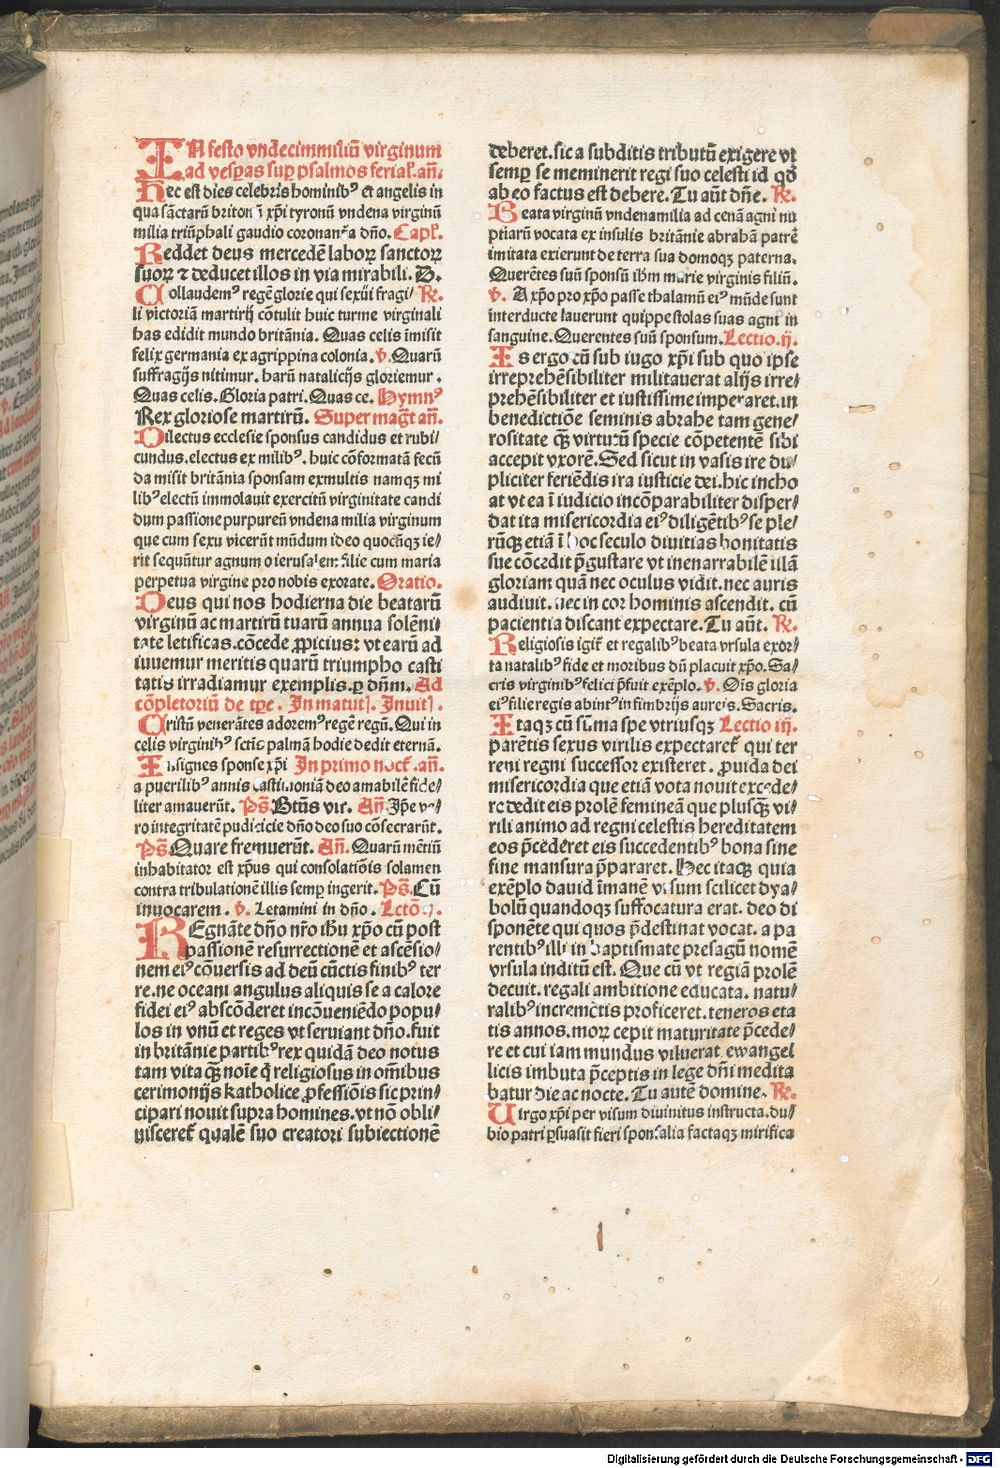 IN festo vndecimmiliū virginum
ad vesꝑas suꝑ psalmos ferialꝭ. añ.
Hec est dies celebris hominibꝰ et angelis in
qua sāctarū britonū xp̄i tyronū vndena virginū
milia triūphali gaudio coronant̄a dn̄o. Capꝉ.
Reddet deus mercedē laboꝝ sanctoꝝ
suoꝝ ⁊ deducet illos in via mirabili. D.
Collaudemꝰ regē glorie qui sexui fragi/ ℞.
li victoriā martirij cōtulit huic turme virginali
has edidit mundo britānia. Quas celis imisit
felix germania ex agrippina colonia. ꝟ. Quarū
suffragijs nitimur. harū natalicijs gloriemur.
Quas celis. Gloria patri. Quas ce. Hymnꝰ
Rex gloriose martirū. Super maḡt añ.
Dilectus ecclesie sponsus candidus et rubi/
cundus. electus ex milibꝰ. huic cōformatā fecū
da misit britānia sponsam ex multis namqꝫ mi
libꝰ electū immolauit exercitū virginitate candi
dum passione purpureū vndena milia virginum
que cum sexu vicerūt mūdum ideo quocūqꝫ ie/
rit sequūtur agnum o ierusalem filie cum maria
perpetua virgine pro nobis exorate. Oratio.
Deus qui nos hodierna die beatarū
virginū ac martirū tuarū annua solēni
tate letificas. cōcede ꝓpicius: vt earū ad
iuuemur meritis quarū triumpho casti
tatis irradiamur exemplis. ꝑ dn̄m. Ad
cōpletoriū de tꝑe. In matutꝭ. Inuitꝭ.
Cristū venerātes adoremꝰ regē regū. Qui in
celis virginibꝰ sctīs palmā hodie dedit eternā.
Insignes sponse xp̄i In primo noct̄. añ.
a puerilibꝰ annis castimoniā deo amabilē fide/
liter amauerūt. Ps̄. Btūs vir. Añ Ip̄e ve/
ro integritatē pudicicie dn̄o deo suo cōsecrarūt.
Ps̄. Quare fremuerūt. Añ. Quarū mētiū
inhabitator est xp̄us qui consolatiōis solamen
contra tribulationē illis semꝑ ingerit. Ps̄. Cū
inuocarem. ꝟ. Letamini in dn̄o. Lctō .j.
REgnāte dn̄o nr̄o ih̄u xp̄o cū post
passionē resurrectionē et ascēsio/
nem eiꝰ cōuersis ad deū cūctis finibꝰ ter
re. ne oceani angulus aliquis se a calore
fidei eiꝰ abscōderet incōueniēdo popu/
los in vnū et reges vt seruiant dn̄o. fuit
in britānie partibꝰ rex quidā deo notus
tam vita qꝫ noīe q̇ religiosus in om̄ibus
cerimonijs katholice ꝓfessiōis sic prin/
cipari nouit supra homines. vt nō obli/
uisceret̄ qualē suo creatori subiectionē
deberet. sic a subditis tributū exigere vt
semꝑ se meminerit regi suo celesti id qd̄
ab eo factus est debere. Tu aūt dn̄e. ℞.
Beata virginū vndenamilia ad cenā agni nu
ptiarū vocata ex insulis britānie abrahā patrē
imitata exierunt de terra sua domoqꝫ paterna.
Querētes suū sponsū ih̄m marie virginis filiū.
ꝟ. A xp̄o pro xp̄o passe thalamū eiꝰ mūde sunt
interducte lauerunt quippe stolas suas agni in
sanguine. Querentes suū sponsum. Lectio .ij.
IS ergo cū sub iugo xp̄i sub quo ipse
irreprehēsibiliter militauerat alijs irre/
prehēsibiliter et iustissime imperaret. in
benedictiōe seminis abrahe tam gene/
rositate qꝫ virtutū specie cōpetentē sibi
accepit vxorē. Sed sicut in vasis ire du/
pliciter feriēdis ira iusticie dei. hic incho
at vt ea ī iudicio incōparabiliter disper/
dat ita misericordia eiꝰ diligētibꝰ se ple/
rūqꝫ etiā ī hoc seculo diuitias bonitatis
sue cōcedit p̄gustare vt inenarrabilē illā
gloriam quā nec oculus vidit. nec auris
audiuit. nec in cor hominis ascendit. cū
pacientia discant expectare. Tu aūt. ℞.
Religiosis igit̄ et regalibꝰ beata vrsula exor/
ta natalibꝰ fide et moribus dū placuit xp̄o. Sa/
cris virginibꝰ felici p̄fuit exēplo. ꝟ. Oīs gloria
eiꝰ filie regis abintꝰ in fimbrijs aureis. Sacris.
Itaqꝫ cū sūma spe vtriusqꝫ Lectio iij.
parētis sexus virilis expectaret̄ qui ter
reni regni successor existeret. ꝓuida dei
misericordia que etiā vota nouit excede/
re dedit eis prolē femineā que plusqꝫ vi/
rili animo ad regni celestis hereditatem
eos p̄cederet eis succedentibꝰ bona sine
fine mansura p̄pararet. Hec itaqꝫ quia
exēplo dauid īmanē vrsum scilicet dya/
bolū quandoqꝫ suffocatura erat. deo di
sponēte qui quos p̄destinat vocat. a pa
rentibꝰ illi in baptismate presagū nomē
vrsula inditū est. Que cū vt regiā prolē
decuit. regali ambitione educata. natu/
ralibꝰ incremētis proficeret. teneros eta
tis annos. moꝝ cepit maturitate p̄cede/
re et cui iam mundus viluerat ewangel
licis imbuta p̄ceptis in lege dn̄i medita
batur die ac nocte. Tu autē domine. ℞.
Virgo xp̄i per visum diuinitus instructa. du/
bio patri ꝑsuasit fieri sponsalia factaqꝫ mirifica
Digitalisierung gefördert durch die Deutsche Forschungsgemeinschaft - DFG